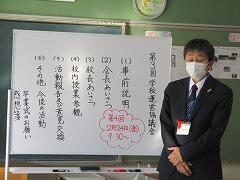 第3回学校運営協議会
(1) 事前説明
(2) 会長あいさつ
(3) 校長あいさつ
(4) 校内授業参観
(5) 活動報告及び意見交換
(6) その他 今後の活動
卒業式のお願い
第4回
2月24日(金)
9:30〜